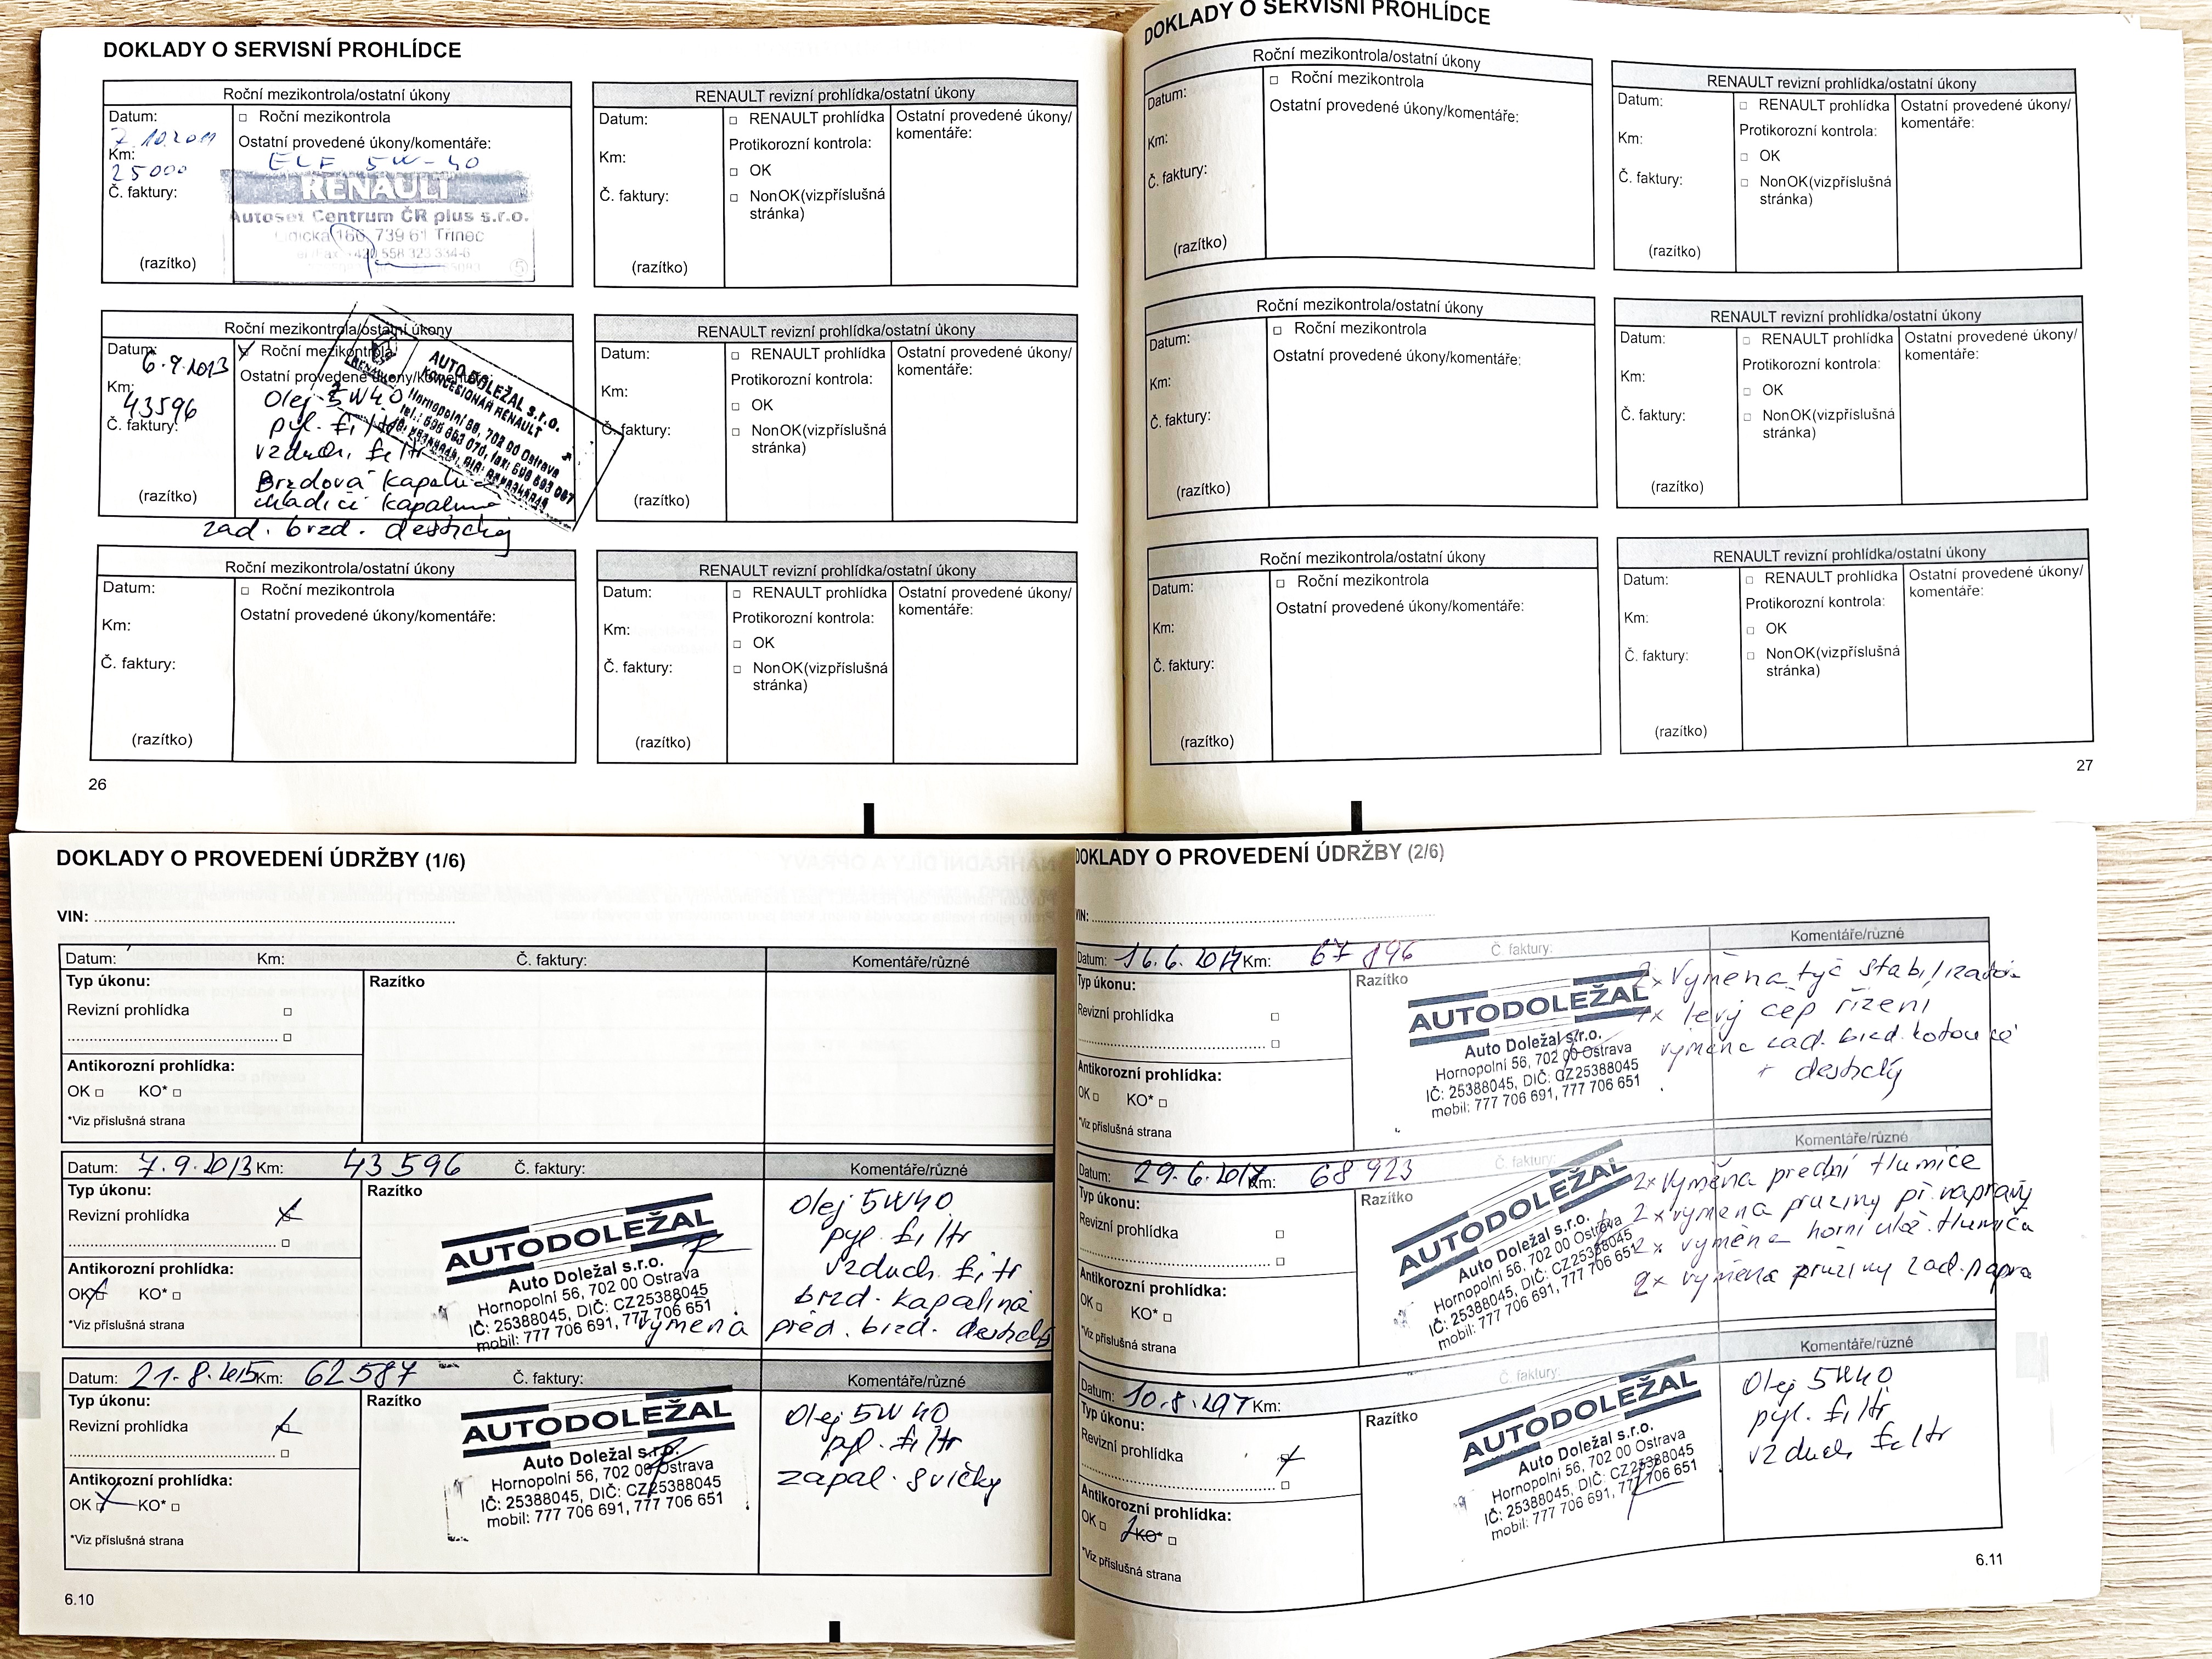 DOKLADY O SERVISNÍ PROHLÍDCE
Roční mezikontrola/ostatní úkony
Datum:
7.10.2011
Km:
25000
Č. faktury:
(razítko)
□ Roční mezikontrola
Ostatní provedené úkony/komentáře:
ELF 5W-40
RENAULT
Autoset Centrum ČR plus s.r.o.
166, 739 61 Třinec
558 323 334-6
RENAULT revizní prohlídka/ostatní úkony
Datum:
Km:
Č. faktury:
(razítko)
□ RENAULT prohlídka
Protikorozní kontrola:
□ OK
□ NonOK(vizpříslušná
stránka)
Ostatní provedené úkony/
komentáře:
Roční mezikontrola/ostatní úkony
Datum:
6.9.2013
Km:
43596
Č. faktury:
(razítko)
Roční mezikontrola
Ostatní provedené úkony/komentáře:
Olej 5W40
pyl. filtr
vzduch. filtr
Brzdová kapalina
chladící kapalina
zad. brzd. destičky
AUTO DOLEŽAL s.r.o.
KONCESIONÁŘ RENAULT
Hornopolní 56, 702 00 Ostrava
RENAULT revizní prohlídka/ostatní úkony
Datum:
Km:
Č. faktury:
(razítko)
□ RENAULT prohlídka
Protikorozní kontrola:
□ OK
□ NonOK(vizpříslušná
stránka)
Ostatní provedené úkony/
komentáře:
Roční mezikontrola/ostatní úkony
Datum:
Km:
Č. faktury:
(razítko)
□ Roční mezikontrola
Ostatní provedené úkony/komentáře:
RENAULT revizní prohlídka/ostatní úkony
Datum:
Km:
Č. faktury:
(razítko)
□ RENAULT prohlídka
Protikorozní kontrola:
□ OK
□ NonOK(vizpříslušná
stránka)
Ostatní provedené úkony/
komentáře:
26
DOKLADY O SERVISNÍ PROHLÍDCE
Roční mezikontrola/ostatní úkony
Datum:
Km:
Č. faktury:
(razítko)
□ Roční mezikontrola
Ostatní provedené úkony/komentáře:
RENAULT revizní prohlídka/ostatní úkony
Datum:
Km:
Č. faktury:
(razítko)
□ RENAULT prohlídka
Protikorozní kontrola:
□ OK
□ NonOK(vizpříslušná
stránka)
Ostatní provedené úkony/
komentáře:
Roční mezikontrola/ostatní úkony
Datum:
Km:
Č. faktury:
(razítko)
□ Roční mezikontrola
Ostatní provedené úkony/komentáře:
RENAULT revizní prohlídka/ostatní úkony
Datum:
Km:
Č. faktury:
(razítko)
□ RENAULT prohlídka
Protikorozní kontrola:
□ OK
□ NonOK(vizpříslušná
stránka)
Ostatní provedené úkony/
komentáře:
Roční mezikontrola/ostatní úkony
Datum:
Km:
Č. faktury:
(razítko)
□ Roční mezikontrola
Ostatní provedené úkony/komentáře:
RENAULT revizní prohlídka/ostatní úkony
Datum:
Km:
Č. faktury:
(razítko)
□ RENAULT prohlídka
Protikorozní kontrola:
□ OK
□ NonOK(vizpříslušná
stránka)
Ostatní provedené úkony/
komentáře:
27
DOKLADY O PROVEDENÍ ÚDRŽBY (1/6)
VIN:
Datum: Km: Č. faktury: Komentáře/různé
Typ úkonu: Razítko
Revizní prohlídka □
Antikorozní prohlídka:
OK □ KO* □
*Viz příslušná strana
Datum: 7.9.2013 Km: 43 596 Č. faktury: Komentáře/různé
Typ úkonu: Razítko
Revizní prohlídka
Antikorozní prohlídka:
OK KO* □
*Viz příslušná strana
AUTODOLEŽAL
Auto Doležal s.r.o.
Hornopolní 56, 702 00 Ostrava
IČ: 25388045, DIČ: CZ25388045
mobil: 777 706 691, 777 706 651
Olej 5W40
pyl. filtr
vzduch. filtr
brzd. kapalina
výměna před. brzd. destičky
Datum: 21.8.2015 Km: 62587 Č. faktury: Komentáře/různé
Typ úkonu: Razítko
Revizní prohlídka
Antikorozní prohlídka:
OK KO* □
*Viz příslušná strana
AUTODOLEŽAL
Auto Doležal s.r.o.
Hornopolní 56, 702 00 Ostrava
IČ: 25388045, DIČ: CZ25388045
mobil: 777 706 691, 777 706 651
Olej 5W40
pyl. filtr
zapal. svíčky
6.10
DOKLADY O PROVEDENÍ ÚDRŽBY (2/6)
VIN:
Datum: 16.6.2017 Km: 67 896 Č. faktury: Komentáře/různé
Typ úkonu: Razítko
Revizní prohlídka □
Antikorozní prohlídka:
OK □ KO* □
*Viz příslušná strana
AUTODOLEŽAL
Auto Doležal s.r.o.
Hornopolní 56, 702 00 Ostrava
IČ: 25388045, DIČ: CZ25388045
mobil: 777 706 691, 777 706 651
2x Výměna tyč stabilizátor
1x levý čep řízení
výměna zad. brzd. kotouče
+ destičky
Datum: 29.6.2017 Km: 68 923 Č. faktury: Komentáře/různé
Typ úkonu: Razítko
Revizní prohlídka □
Antikorozní prohlídka:
OK □ KO* □
*Viz příslušná strana
AUTODOLEŽAL
Auto Doležal s.r.o.
Hornopolní 56, 702 00 Ostrava
IČ: 25388045, DIČ: CZ25388045
mobil: 777 706 691, 777 706 651
2x Výměna přední tlumiče
2x výměna pružiny př. nápravy
2x výměna horní ulož. tlumiča
2x výměna pružiny zad. nápra
Datum: 10.8.2017 Km: Č. faktury: Komentáře/různé
Typ úkonu: Razítko
Revizní prohlídka
Antikorozní prohlídka:
OK □ KO* □
*Viz příslušná strana
AUTODOLEŽAL
Auto Doležal s.r.o.
Hornopolní 56, 702 00 Ostrava
IČ: 25388045, DIČ: CZ25388045
mobil: 777 706 691, 777 706 651
Olej 5W40
pyl. filtr
vzduch filtr
6.11